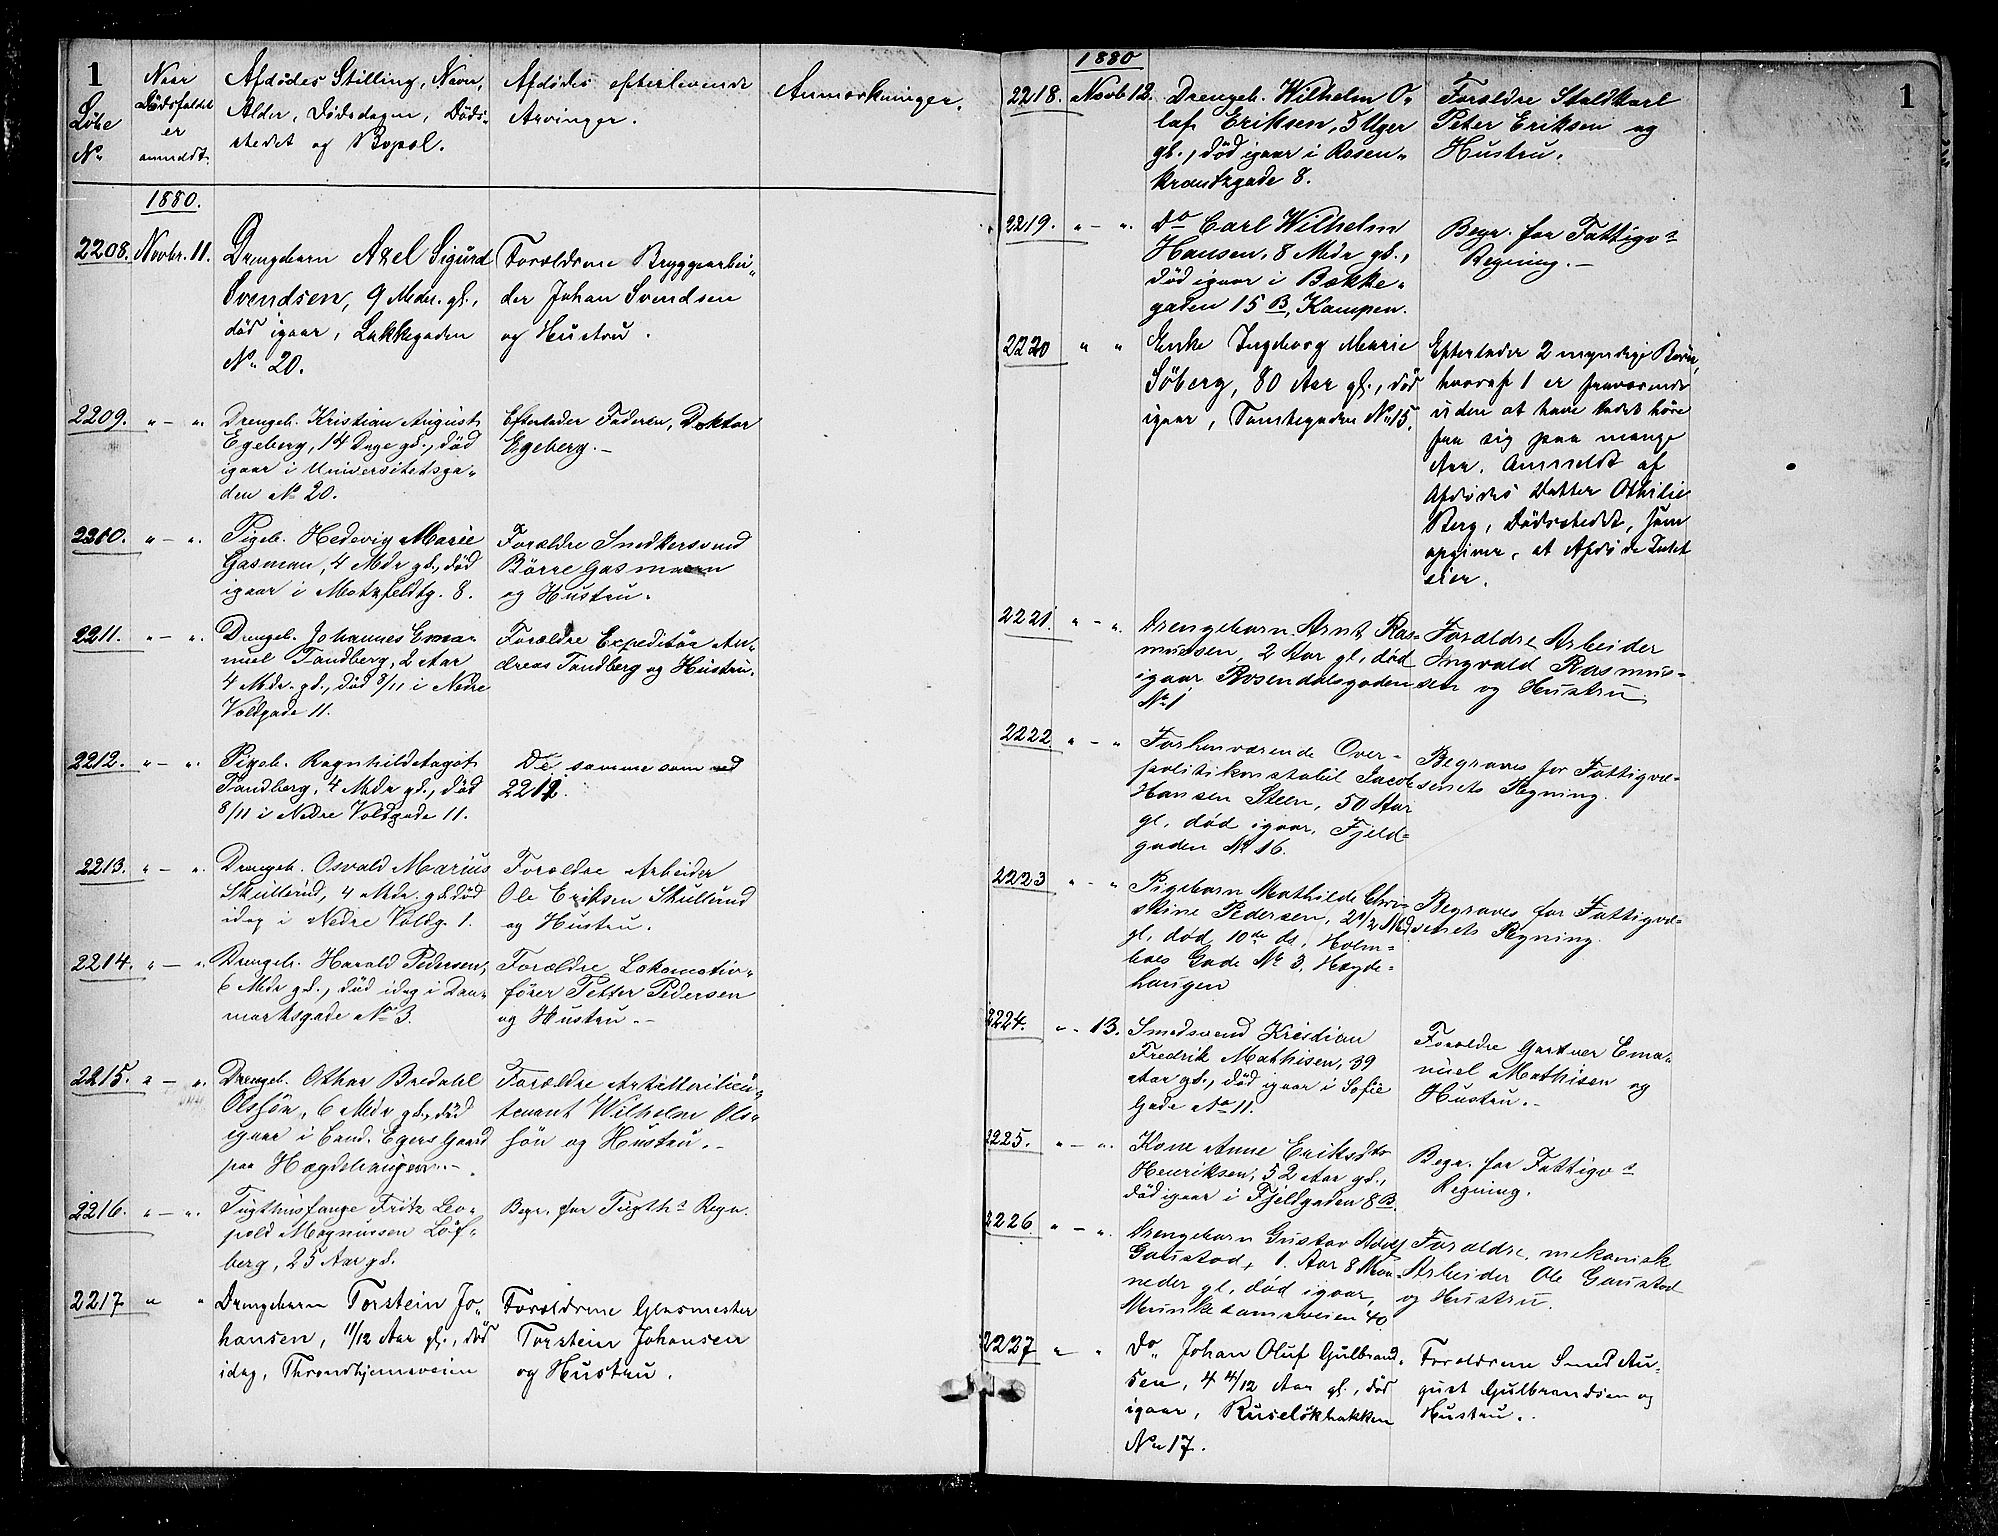 1
Løbe
No
Naar
Dødsfaldet
er
anmeldt.
Afdødes Stilling, Navn,
Alder, Dødsdagen, Døds-
stedet og Bopæl.
Afdødes efterlevende
Arvinger.
Anmærkninger.
1880.
2208. Novbr. 11.
Drengebarn Axel Sigurd
Svendsen, 9 Mdr. gl.,
død igaar, Lakkegaden
No 20.
Forældrene Bryggearbei-
der Johan Svendsen
og Hustru.
2209. " - ".
Drengeb. Kristian August
Egeberg, 14 Dage gl., død
igaar i Universitetsga-
den No 20.
Efterlader Faderen, Doktor
Egeberg. -
2210. " - ".
Pigeb. Hedevig Marie
Gasman, 4 Mdr gl., død
igaar i Motzfeldtg. 8.
Forældre Snedkersvend
Børre Gasmann
og Hustru.
2211. " - ".
Drengeb. Johannes Ema-
nuel Tandberg, 2 Aar
4 Mdr. gl., død 8/11 i Nedre
Voldgade 11.
Forældre Expeditør An-
dreas Tandberg og Hustru.
2212. " - ".
Pigeb. Ragnhild Magot
Tandberg, 4 Mdr gl., død
8/11 i Nedre Voldgade 11.
De samme som ved
2211.
2213. " - ".
Drengeb. Osvald Marius
Skullerud, 4 Mdr. gl. død
idag i Nedre Voldg. 1.
Forældre Arbeider
Ole Eriksen Skullerud
og Hustru.
2214. " - ".
Drengeb. Harald Pedersen,
6 Mdr gl., død idag i Dan-
marksgade No 3.
Forældre Lokomotiv-
fører Petter Pedersen
og Hustru. -
2215. " - ".
Drengeb. Othar Bredahl
Olssøn, 6 Mdr gl., død
igaar i Cand. Egers Gaard
paa Hægdehaugen. -
Forældre Artillerilieu-
tenant Wilhelm Ols-
søn og Hustru. -
2216. " - ".
Tugthusfange Fritz Leo-
pold Magnussen Löf-
berg, 25 Aar gl.
Begr. for Tugths Regn.
2217 " "
Drengebarn Torstein Jo-
hansen, 11/12 Aar gl., død
idag, Throndhjemsveien
Forældrene Glasmester
Torstein Johansen
og Hustru.
1880
1
2218. Novb 12.
Drengeb. Wilhelm O-
laf Eriksen, 5 Uger
gl., død igaar i Rosen-
krantzgade 8.
Forældre Staldkarl
Peter Eriksen og
Hustru.
2219. " - ".
Do Carl Wilhelm
Hansen, 8 Mdr gl.,
død igaar i Bække-
gaden 15 B, Kampen.
Begr. for Fattigvs
Regning. -
2220 " "
Enke Ingeborg Marie
Søberg, 80 Aar gl., død
igaar, Tomtegaden No 15.
Efterlader 2 myndige Børn,
hvoraf 1 er fraværende
uden at have ladet høre
fra sig paa mange
Aar. Anmeldt af
Afdødes Datter Othilie
Berg, Dødsstedet, som
opgiver, at Afdøde Intet
eier.
2221. " - ".
Drengebarn Arnt Ras-
mussen, 2 Aar gl., død
igaar Rosendalsgaden
No 1
Forældre Arbeider
Ingvald Rasmus-
sen og Hustru
2222 " - "
Forhenværende Over-
politikonstabel Jacob
Hansen Steen, 50 Aar
gl, død igaar, Fjeld-
gaden No 16.
Begraves for Fattigvæ-
senets Regning.
2223 " - "
Pigebarn Mathilde Chri-
stine Pedersen, 2 1/2 Md
gl, død 10de ds, Holm-
boes Gade No 3, Hægde-
haugen
Begraves for Fattigvæ-
senets Regning.
2224. " - 13.
Smedsvend Kristian
Fredrik Mathisen, 39
Aar gl., død igaar i Sofie
Gade No 11.
Forældre Gartner Ema-
nuel Mathisen og
Hustru. -
2225. " - ".
Kone Anne Eriksdtr
Henriksen, 52 Aar gl.,
død igaar i Fjeldgaden 8 B.
Begr. for Fattigvs
Regning.
2226 " - ".
Drengebarn Gustav Adolf
Gaustad, 1. Aar 8 Maa-
neder gl., død igaar,
Munkedamsveien 40.
Forældre, mekanisk
Arbeider Ole Gaustad
og Hustru.
2227 " "
Do Johan Oluf Gulbrand-
sen, 4 4/12 Aar gl., død
igaar, Ruseløkbakken
No 17.
Forældrene Smed Au-
gust Gulbrandsen og
Hustru.